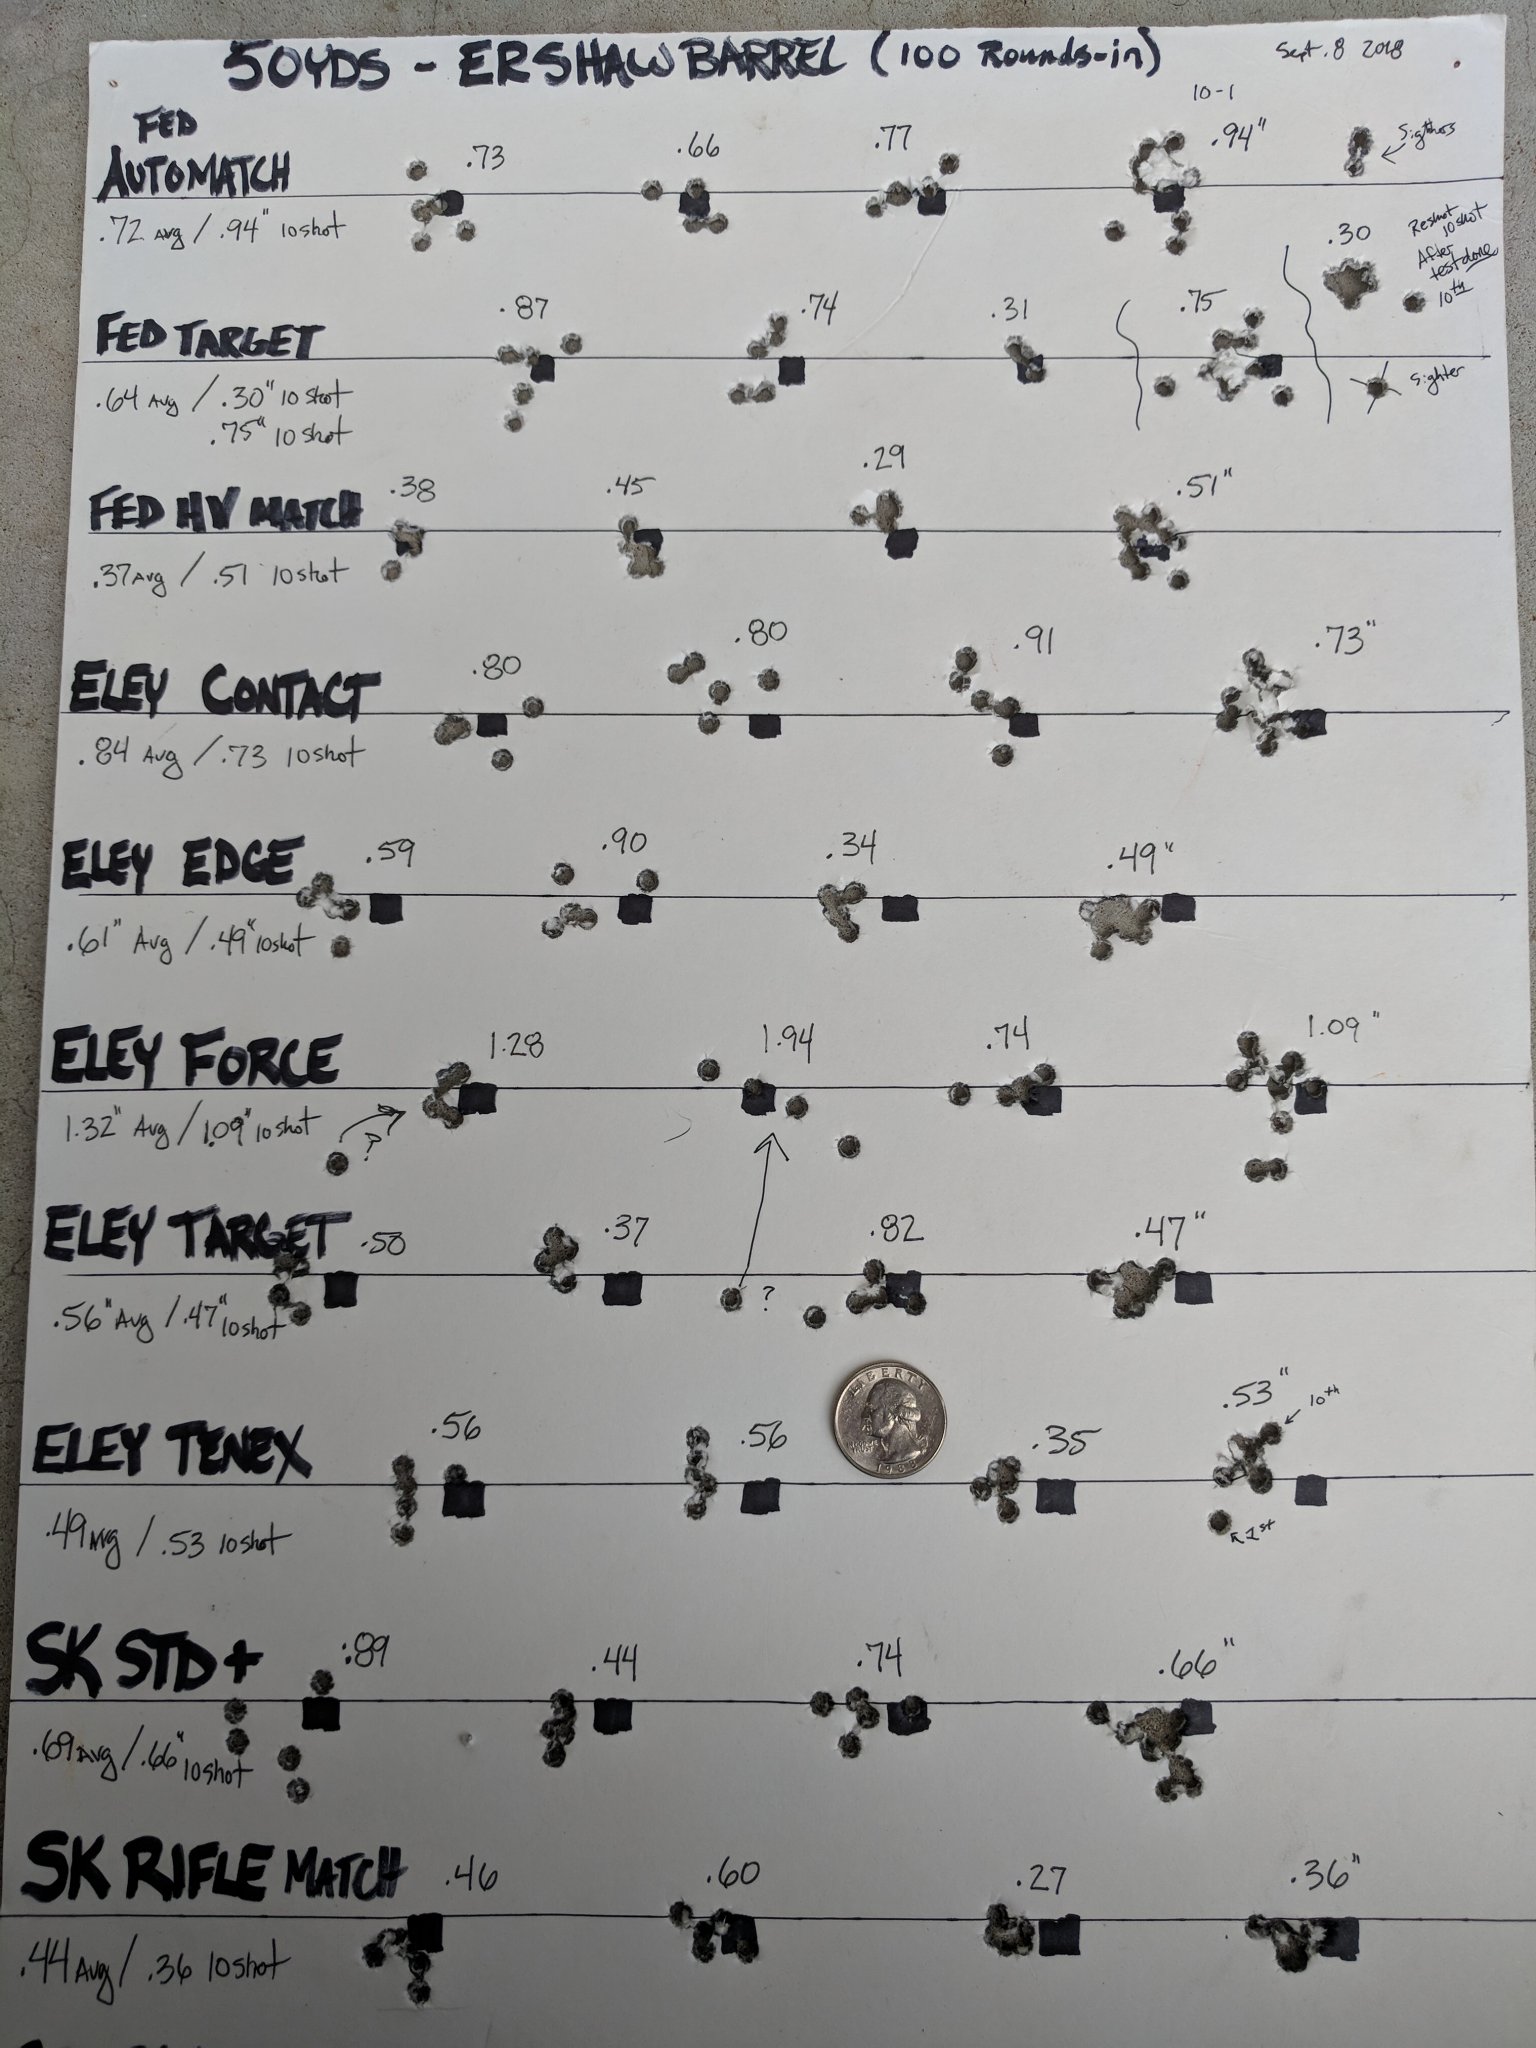 50YDS - ERSHAW BARREL (100 Rounds-in)
Sept. 8 2018
FED
AUTOMATCH
.73
.66
.77
10-1
.94"
Sigthers
.72 Avg / .94" 10 shot
.30
Reshot
10 shot
After
test done
10th
FED TARGET
.87
.74
.31
.75
sighter
.64 Avg / .30" 10 shot
.75" 10 shot
FED HV MATCH
.38
.45
.29
.51"
.37 Avg / .51 10 shot
ELEY CONTACT
.80
.80
.91
.73"
.84 Avg / .73 10 shot
ELEY EDGE
.59
.90
.34
.49"
.61" Avg / .49" 10 shot
ELEY FORCE
1.28
1.94
.74
1.09"
1.32" Avg / 1.09" 10 shot
?
ELEY TARGET
.50
.37
.82
.47"
.56" Avg / .47" 10 shot
?
LIBERTY
ELEY TENEX
.56
.56
.35
.53"
10th
1st
.49 Avg / .53 10 shot
SK STD+
.89
.44
.74
.66"
.69 Avg / .66" 10 shot
SK RIFLE MATCH
.46
.60
.27
.36"
.44 Avg / .36 10 shot